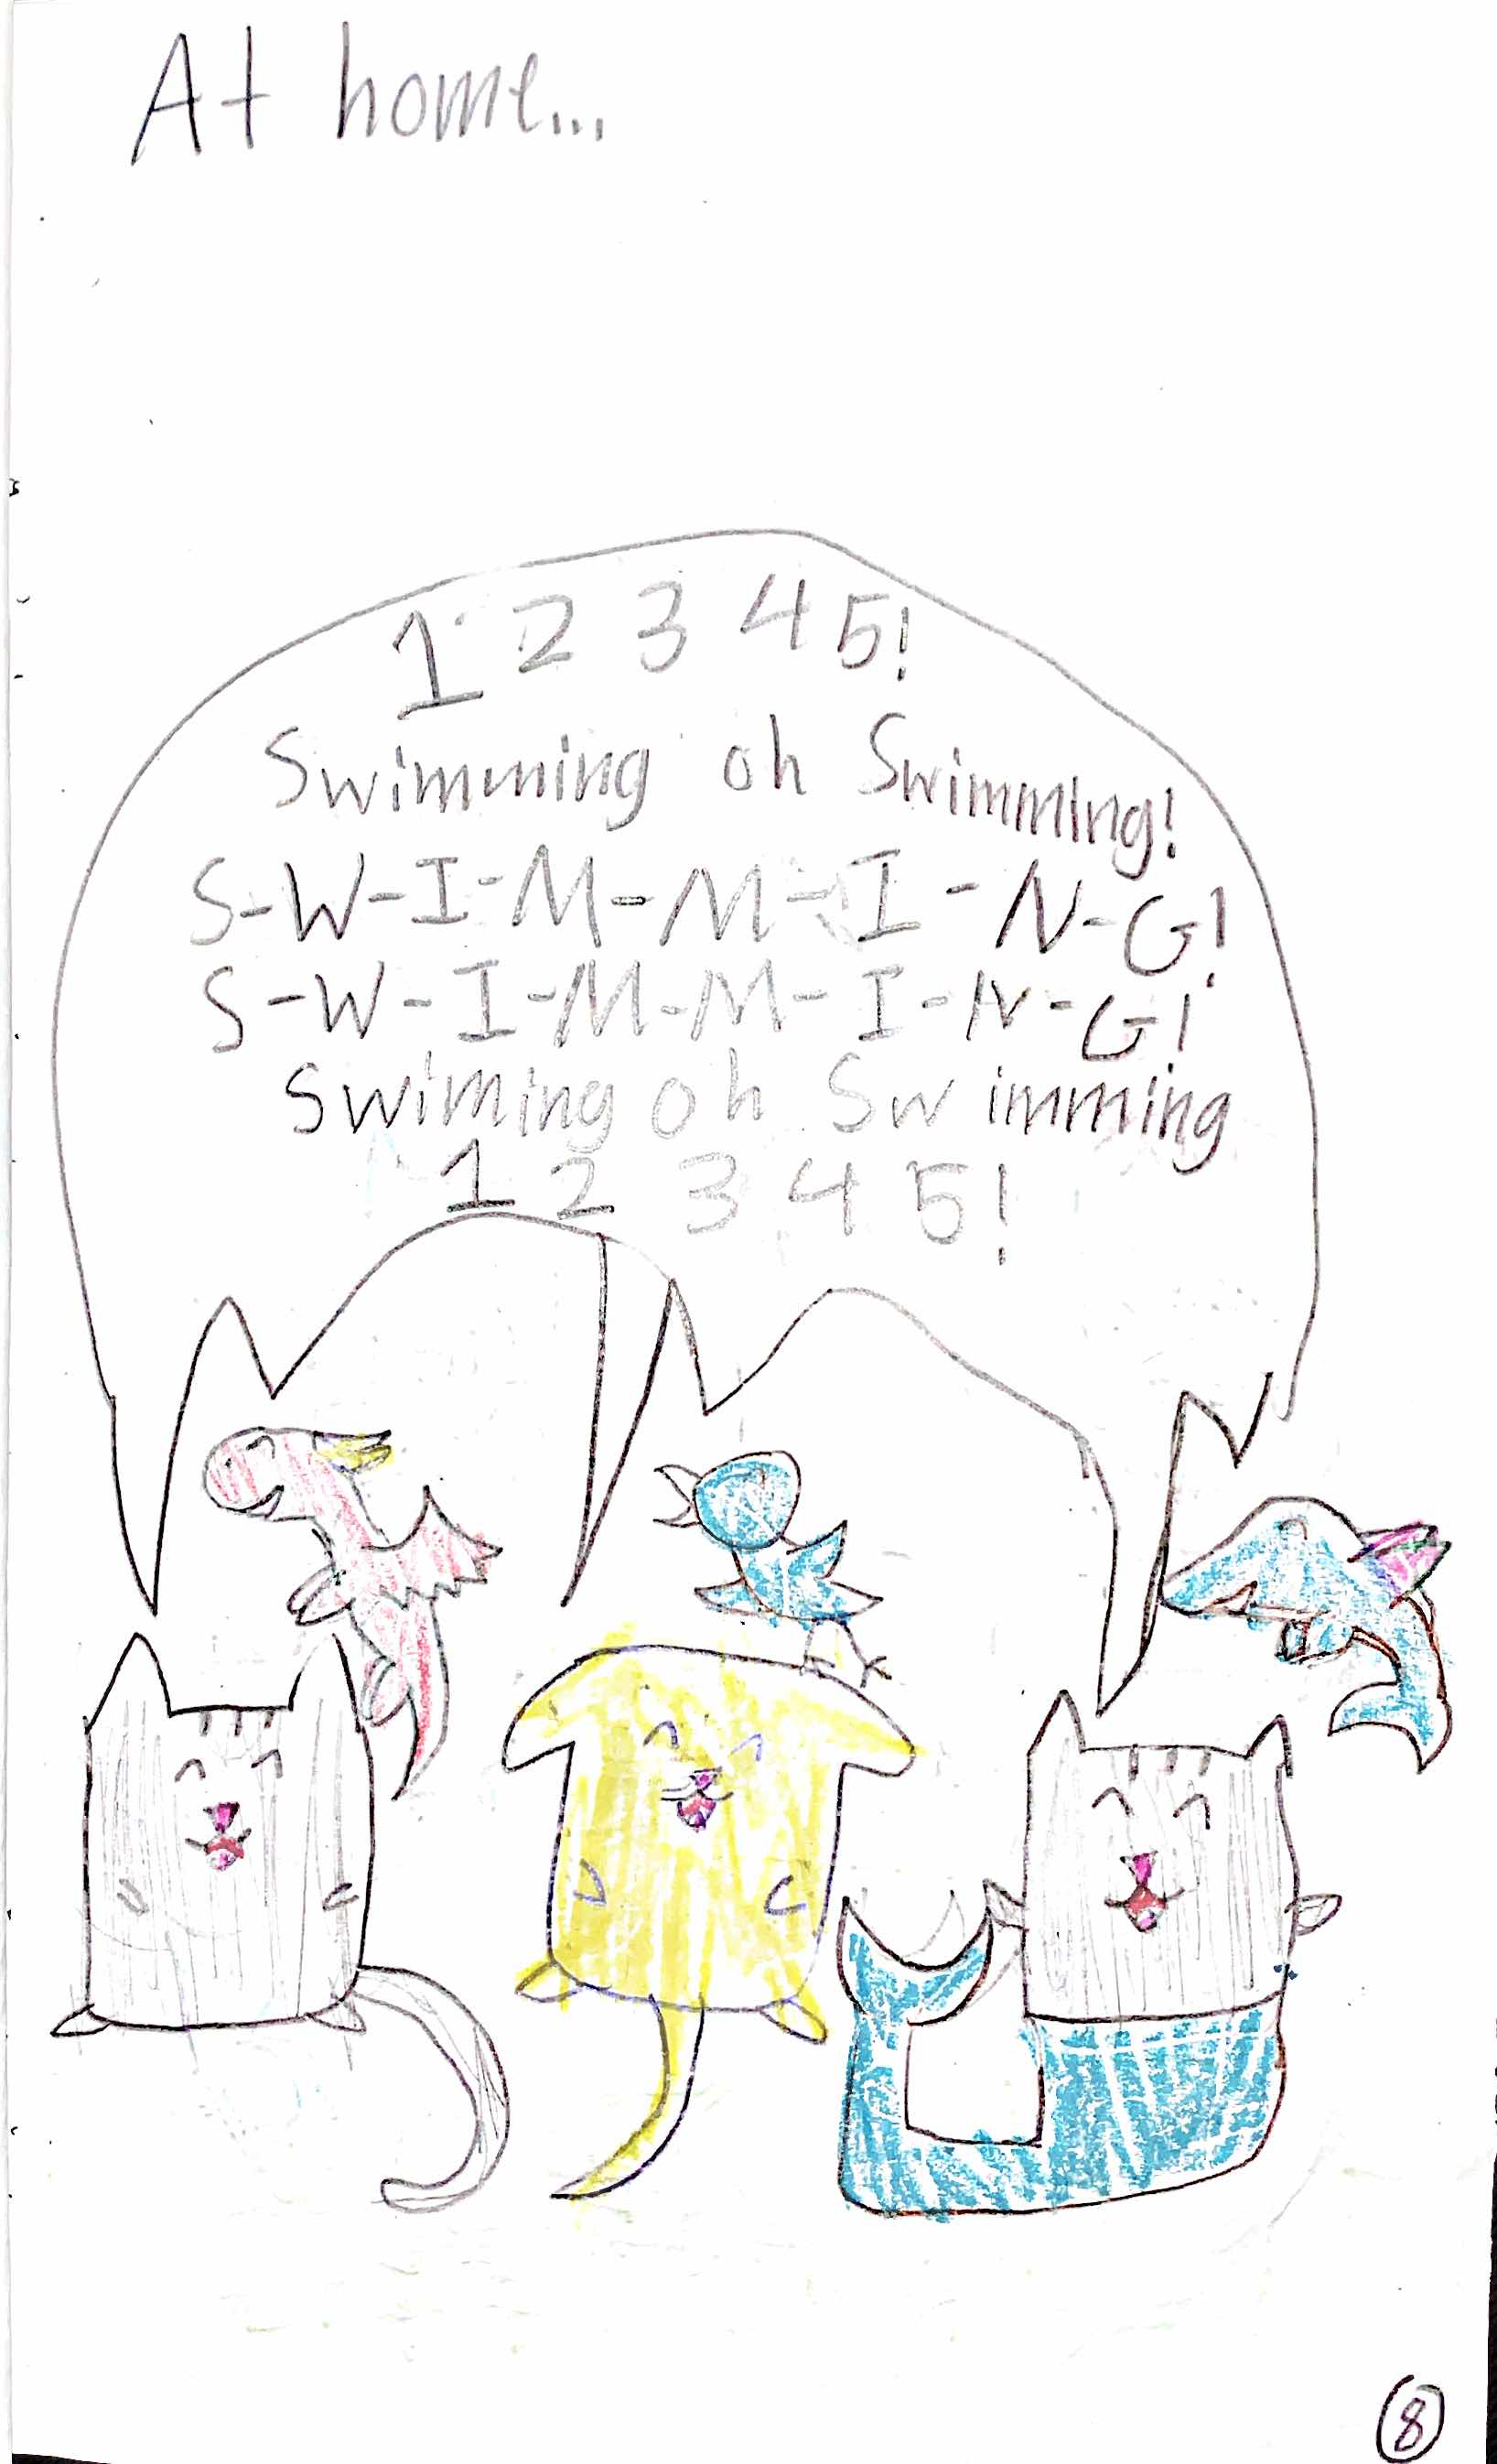 At home...
1 2 3 4 5!
Swimming oh Swimming!
S-W-I-M-M-I-N-G!
S-W-I-M-M-I-N-G!
Swiming oh Swimming
1 2 3 4 5!
8